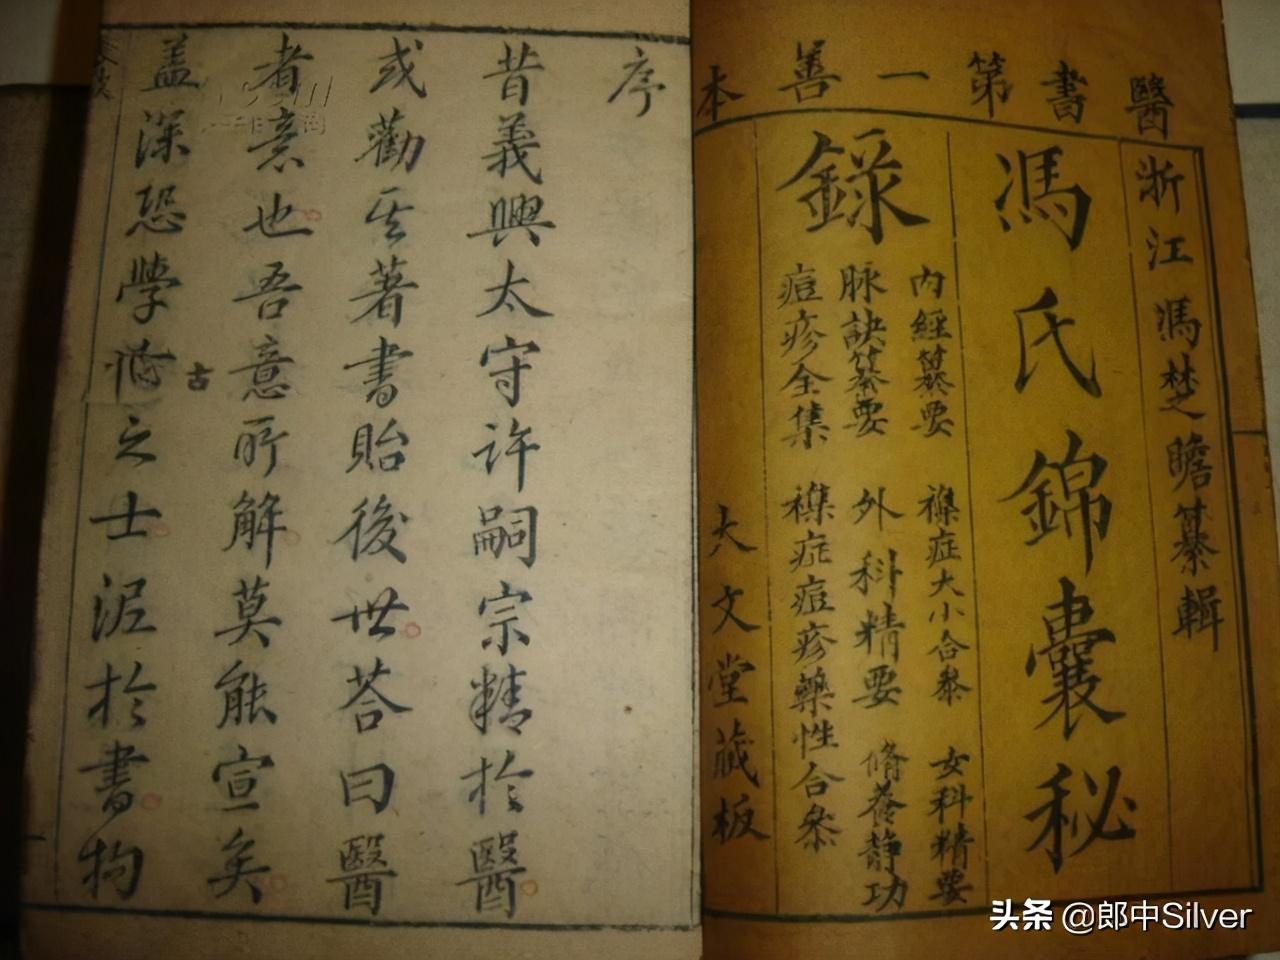 醫書第一善本
浙江馮楚瞻纂輯
馮氏錦囊秘
錄
內經纂要 襍症大小合叅 女科精要
脉訣纂要 外科精要 脩养静功
痘疹全集 襍症痘疹藥性合叅
大文堂藏板
序
昔義興太守許嗣宗精於醫
或勸其著書貽後世荅曰醫
者意也吾意所解莫能宣矣
盖深恐學古之士泥於書拘
头条 @郎中Silver